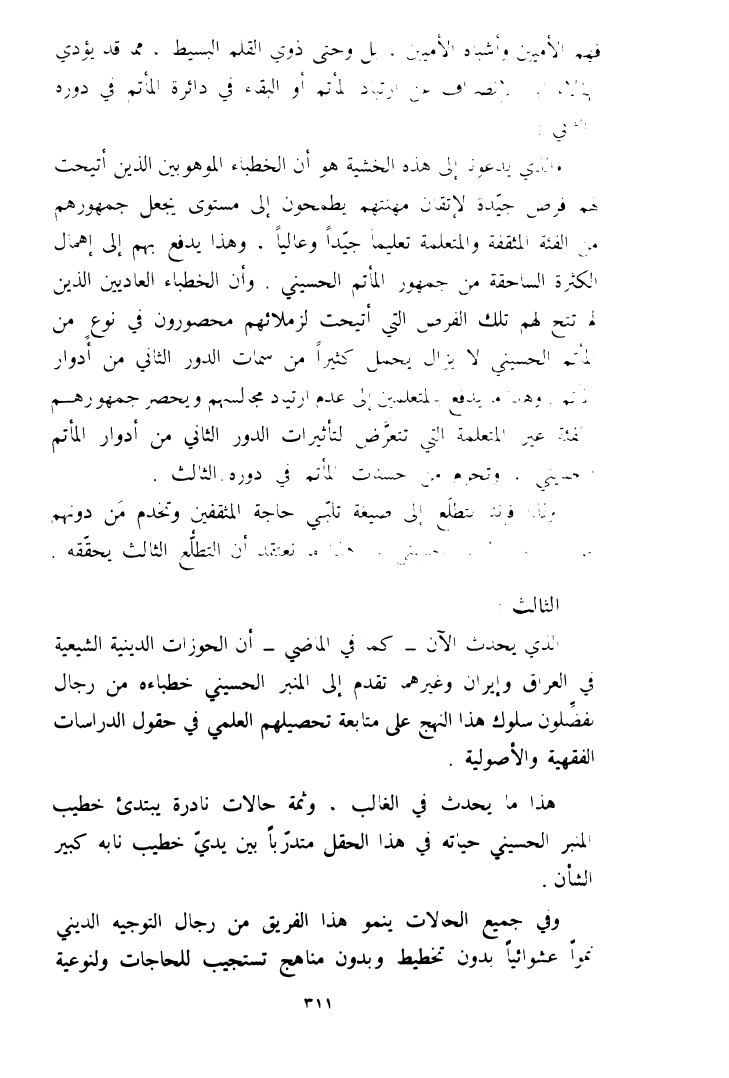 فهم الأميين وأشباه الأميين . بل وحتى ذوي القلم البسيط . مما قد يؤدي
ارتياد المأتم أو البقاء في دائرة المأتم في دوره
الثاني :
والذي يدعونا إلى هذه الخشية هو أن الخطباء الموهوبين الذين أتيحت
لهم فرص جيّدة لإتقان مهنتهم يطمحون إلى مستوى يجعل جمهورهم
من الفئة المثقفة والمتعلمة تعليماً جيّداً وعالياً . وهذا يدفع بهم إلى إهمال
الكثرة الساحقة من جمهور المأتم الحسيني . وأن الخطباء العاديين الذين
لم تتح لهم تلك الفرص التي أتيحت لزملائهم محصورون في نوعٍ من
المأتم الحسيني لا يزال يحمل كثيراً من سمات الدور الثاني من أدوار
المأتم . وهذا ما يدفع بالمتعلمين إلى عدم ارتياد مجالسهم ويحصر جمهورهم
بالفئة غير المتعلمة التي تتعرَّض لتأثيرات الدور الثاني من أدوار المأتم
الحسيني . وتحرم من حسنات المأتم في دوره الثالث .
نتطلّع إلى صيغة تلبّي حاجة المثقفين وتخدم مَن دونهم
هذا ما نعتقد أن التطلُّع الثالث يحقّقه .
الثالث :
الذي يحدث الآن ـ كما في الماضي ـ أن الحوزات الدينية الشيعية
في العراق وإيران وغيرهما تقدم إلى المنبر الحسيني خطباءه من رجال
يفضِّلون سلوك هذا النهج على متابعة تحصيلهم العلمي في حقول الدراسات
الفقهية والأصولية .
هذا ما يحدث في الغالب . وثمة حالات نادرة يبتدئ خطيب
المنبر الحسيني حياته في هذا الحقل متدرّباً بين يديّ خطيب نابه كبير
الشأن .
وفي جميع الحالات ينمو هذا الفريق من رجال التوجيه الديني
نمواً عشوائياً بدون تخطيط وبدون مناهج تستجيب للحاجات ولنوعية
٣١١